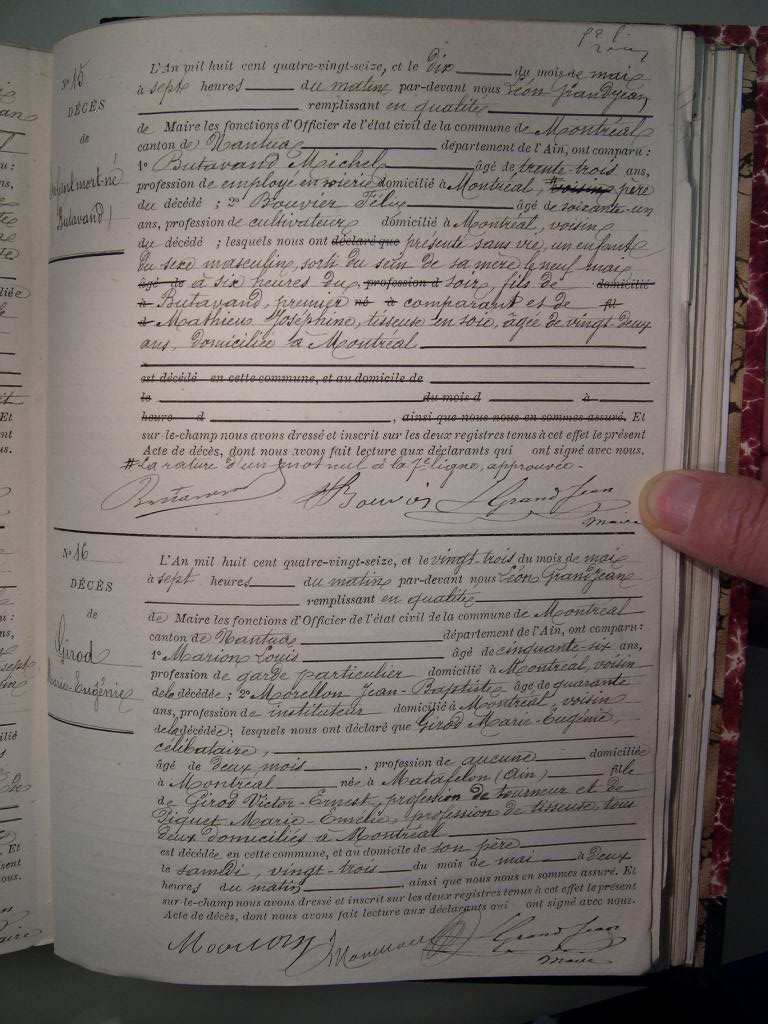 N° 15
DÉCÈS
de
Enfant mort-né
Butavand
L'An mil huit cent quatre-vingt-seize, et le dix du mois de mai
à sept heures du matin par-devant nous Léon Grandjean
remplissant en qualité
de Maire les fonctions d'Officier de l'état civil de la commune de Montréal
canton de Nantua département de l'Ain, ont comparu :
1° Butavand Michel âgé de trente-trois ans,
profession de employé en soierie domicilié à Montréal, # voisin père
du décédé ; 2° Bouvier Félix âgé de soixante-un
ans, profession de cultivateur domicilié à Montréal, voisin
du décédé ; lesquels nous ont déclaré que présenté sans vie, un enfant
du sexe masculin, sorti du sein de sa mère le neuf mai
âgé de à six heures du profession d soir, fils de domicilié
à Butavand, premier né à comparant et de fil
d Mathieu Joséphine, tisseuse en soie, âgée de vingt-deux
ans, domiciliée à Montréal
est décédé en cette commune, et au domicile de
le du mois d à
heure d , ainsi que nous nous en sommes assuré. Et
sur-le-champ nous avons dressé et inscrit sur les deux registres tenus à cet effet le présent
Acte de décès, dont nous avons fait lecture aux déclarants qui ont signé avec nous.
# La rature d'un mot nul à la 7e ligne, approuvée.
Bouvier LGrandJean
maire
N° 16
DÉCÈS
de
Girod
Marie-Eugénie
L'An mil huit cent quatre-vingt-seize, et le vingt-trois du mois de mai
à sept heures du matin par-devant nous Léon Grandjean
remplissant en qualité
de Maire les fonctions d'Officier de l'état civil de la commune de Montréal
canton de Nantua département de l'Ain, ont comparu :
1° Marion Louis âgé de cinquante-six ans,
profession de garde particulier domicilié à Montréal, voisin
de la décédée ; 2° Morellon Jean-Baptiste âgé de quarante
ans, profession de instituteur domicilié à Montréal, voisin
de la décédée ; lesquels nous ont déclaré que Girod Marie-Eugénie,
célibataire,
âgé de deux mois , profession de aucune domiciliée
à Montréal née à Matafelon (Ain) fille
de Girod Victor-Ernest, profession de tourneur et de
Piquet Marie-Emélie, profession de tisseuse, tous
deux domiciliés à Montréal
est décédée en cette commune, et au domicile de son père
le samedi, vingt-trois du mois de mai à deux
heures du matin , ainsi que nous nous en sommes assuré. Et
sur-le-champ nous avons dressé et inscrit sur les deux registres tenus à cet effet le présent
Acte de décès, dont nous avons fait lecture aux déclarants qui ont signé avec nous.
Marion Morellon LGrandJean
maire